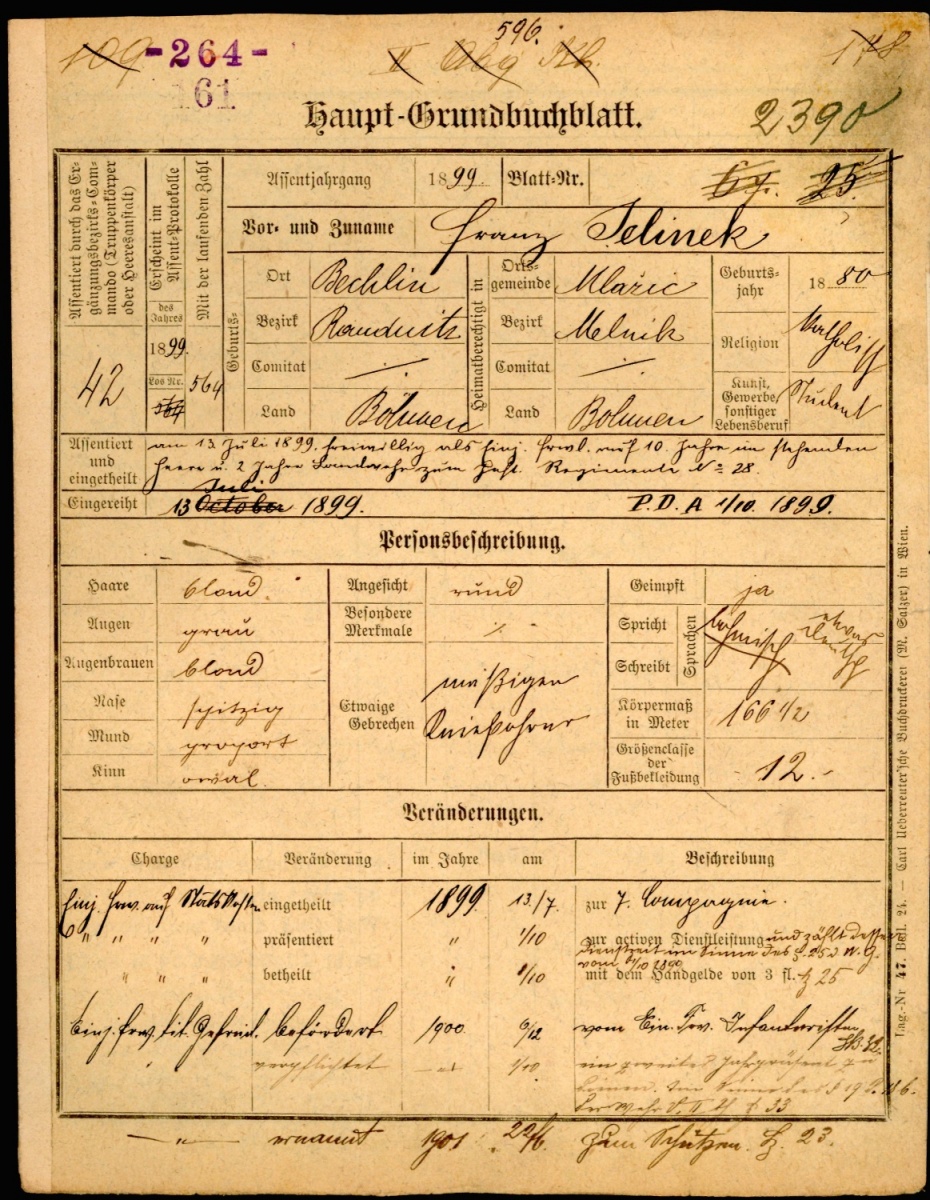 596.
109 -264- II Abg Kh. 178
161
Haupt-Grundbuchblatt.
2390
Assentiert durch das Ergänzungsbezirks-Commando (Truppenkörper oder Heeresanstalt)
42
Erscheint im Assent-Protokolle
des Jahres
1899.
Los Nr.
564
Mit der laufenden Zahl
564
Assentjahrgang 1899. Blatt-Nr. 67. 25
Vor- und Zuname Franz Jelinek
Geburts-
Ort Bechlin
Bezirk Raudnitz
Comitat
Land Böhmen
Heimatberechtigt in
Orts-gemeinde Mlázic
Bezirk Melnik
Comitat
Land Böhmen
Geburts-jahr 1880
Religion katholisch
Kunst, Gewerbe, sonstiger Lebensberuf Student
Assentiert und eingetheilt
am 13. Juli 1899. freiwillig als Einj. frwl. auf 10 Jahre im stehenden
Heere u. 2 Jahre Landwehr zum Inft. Regimente No 28.
Juli
Eingereiht 13 October 1899. P.D.A 1/10. 1899.
Personsbeschreibung.
Haare blond.
Augen grau
Augenbrauen blond
Nase spitzig
Mund proport
Kinn oval.
Angesicht rund
Besondere Merkmale ./.
Etwaige Gebrechen mäßigen
Geimpft ja
Spricht
Schreibt
Sprachen
böhmisch etwas deutsch
Körpermaß in Meter 166 1/2
Größenclasse der Fußbekleidung 12.-
Veränderungen.
Charge Veränderung im Jahre am Beschreibung
Einj. frw. auf Statskosten eingetheilt 1899. 13./7. zur 7. Compagnie.
" " " " präsentiert " 1/10 zur activen Dienstleistung und zählt dessen
Dienstzeit im Sinne des § 25 d. W. G.
vom 1/10 1899
" " " " betheilt " 1/10 mit dem Handgelde von 3 fl. § 25
Einj. frw. tit. Gefreit. befördert 1900 6/12 vom Ein. Frv. Infanteristen
verpflichtet 1/10 ein zweites
— " — ernannt 1901 22/6. zum Schützen. 23.
Lag.-Nr 47. Beil. 24. — Carl Ueberreuter'sche Buchdruckerei (M. Salzer) in Wien.